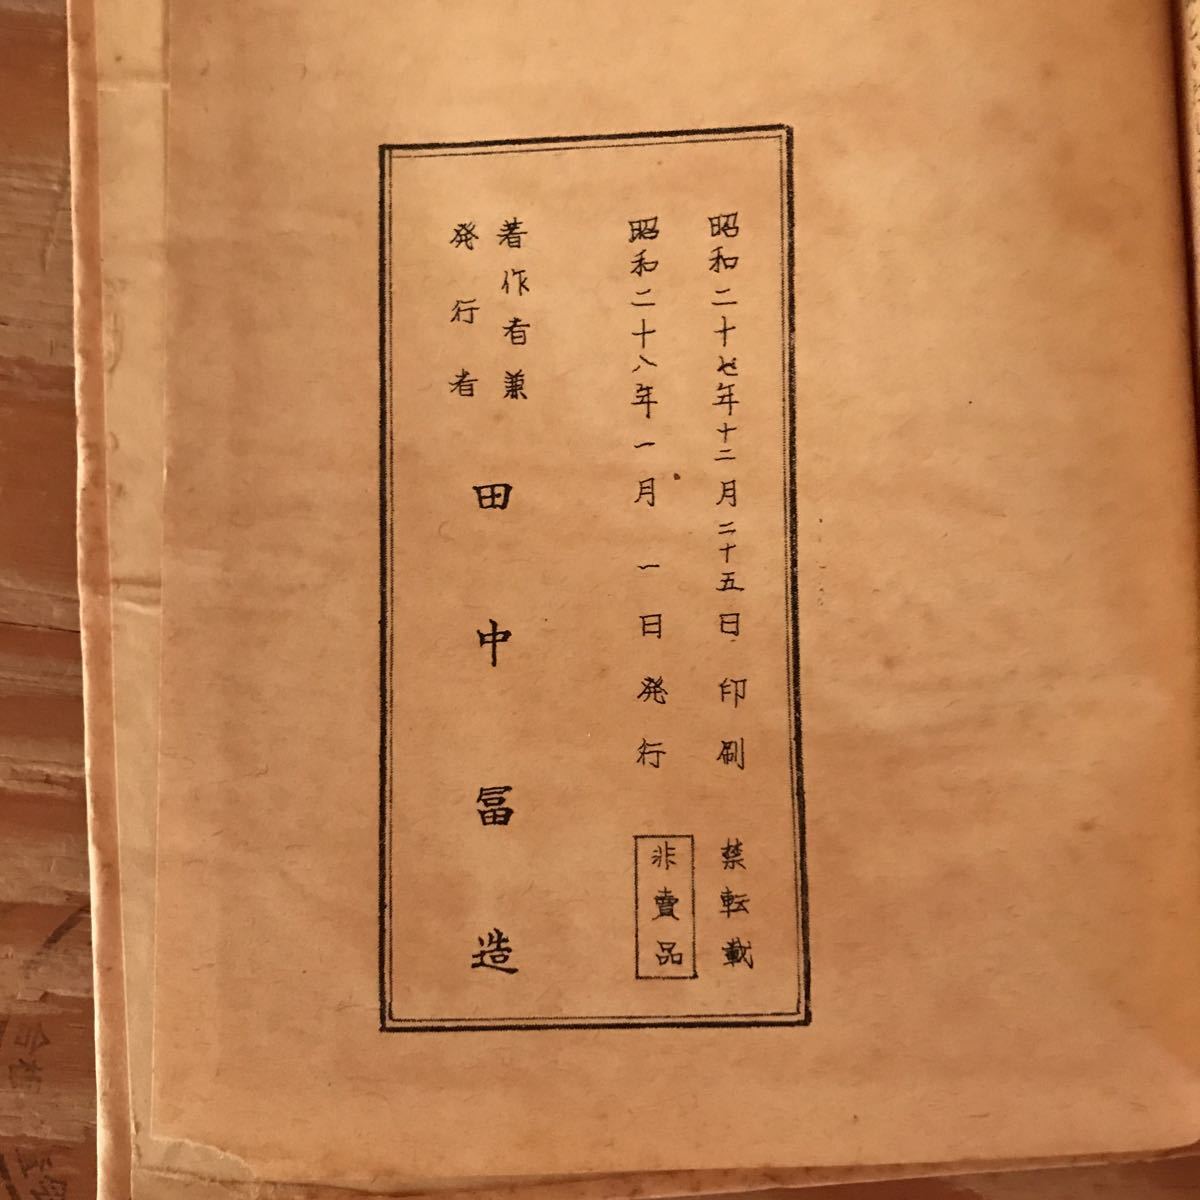 昭和二十七年十二月二十五日印刷 禁転載
昭和二十八年一月一日発行 非賣品
著作者兼
発行者
田中冨造